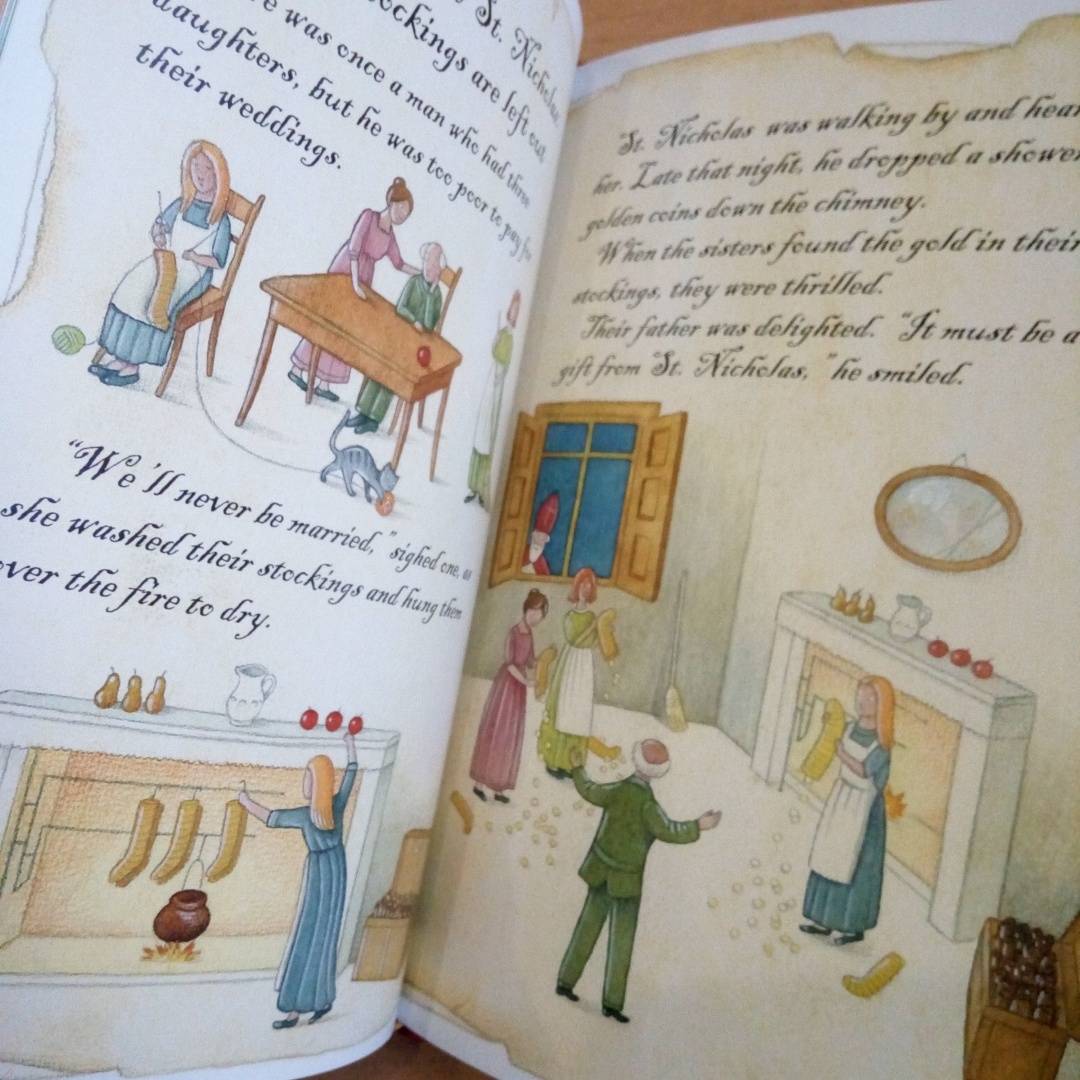 St. Nicholas
stockings are left out.
was once a man who had three
daughters, but he was too poor to pay for
their weddings.
“We’ll never be married,” sighed one, as
she washed their stockings and hung them
over the fire to dry.
St. Nicholas was walking by and hear
her. Late that night, he dropped a shower
golden coins down the chimney.
When the sisters found the gold in their
stockings, they were thrilled.
Their father was delighted. “It must be a
gift from St. Nicholas,” he smiled.